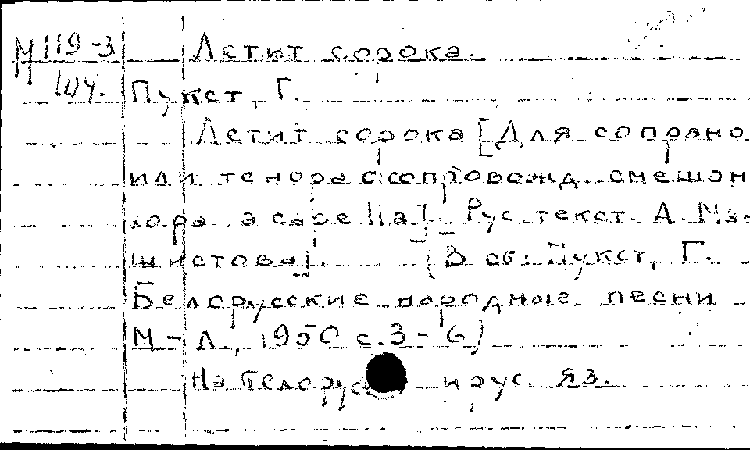 М 119-3 Летит сорока.
1шч. Пукст, Г.
Летит сорока [Для сопрано
или тенора с сопровожд. смешан
хора a cappella] Рус. текст А. Ма-
шистова]. (В сб: Пукст, Г.
Белорусские народные песни
М-Л, 1950 с. 3-6)
На белорус и рус. яз.